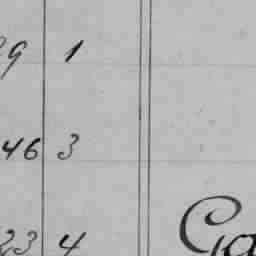 9 1
46 3
23 4 Ca